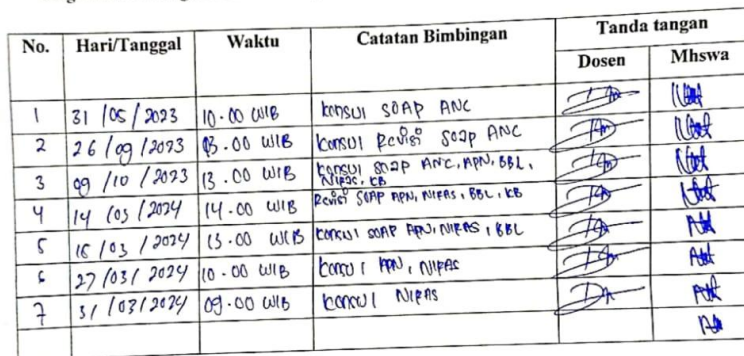 No. Hari/Tanggal Waktu Catatan Bimbingan Tanda tangan
Dosen Mhswa
1 31/05/2023 10.00 WIB konsul SOAP ANC
2 26/09/2023 13.00 WIB konsul Revisi SOAP ANC
3 09/10/2023 13.00 WIB konsul SOAP ANC, APN, BBL,
NIFAS, KB
4 14/03/2024 14.00 WIB Revisi SOAP APN, NIFAS, BBL, KB
5 15/03/2024 13.00 WIB konsul SOAP APN, NIFAS, BBL
6 27/03/2024 10.00 WIB konsul APN, NIFAS
7 31/03/2024 09.00 WIB konsul NIFAS